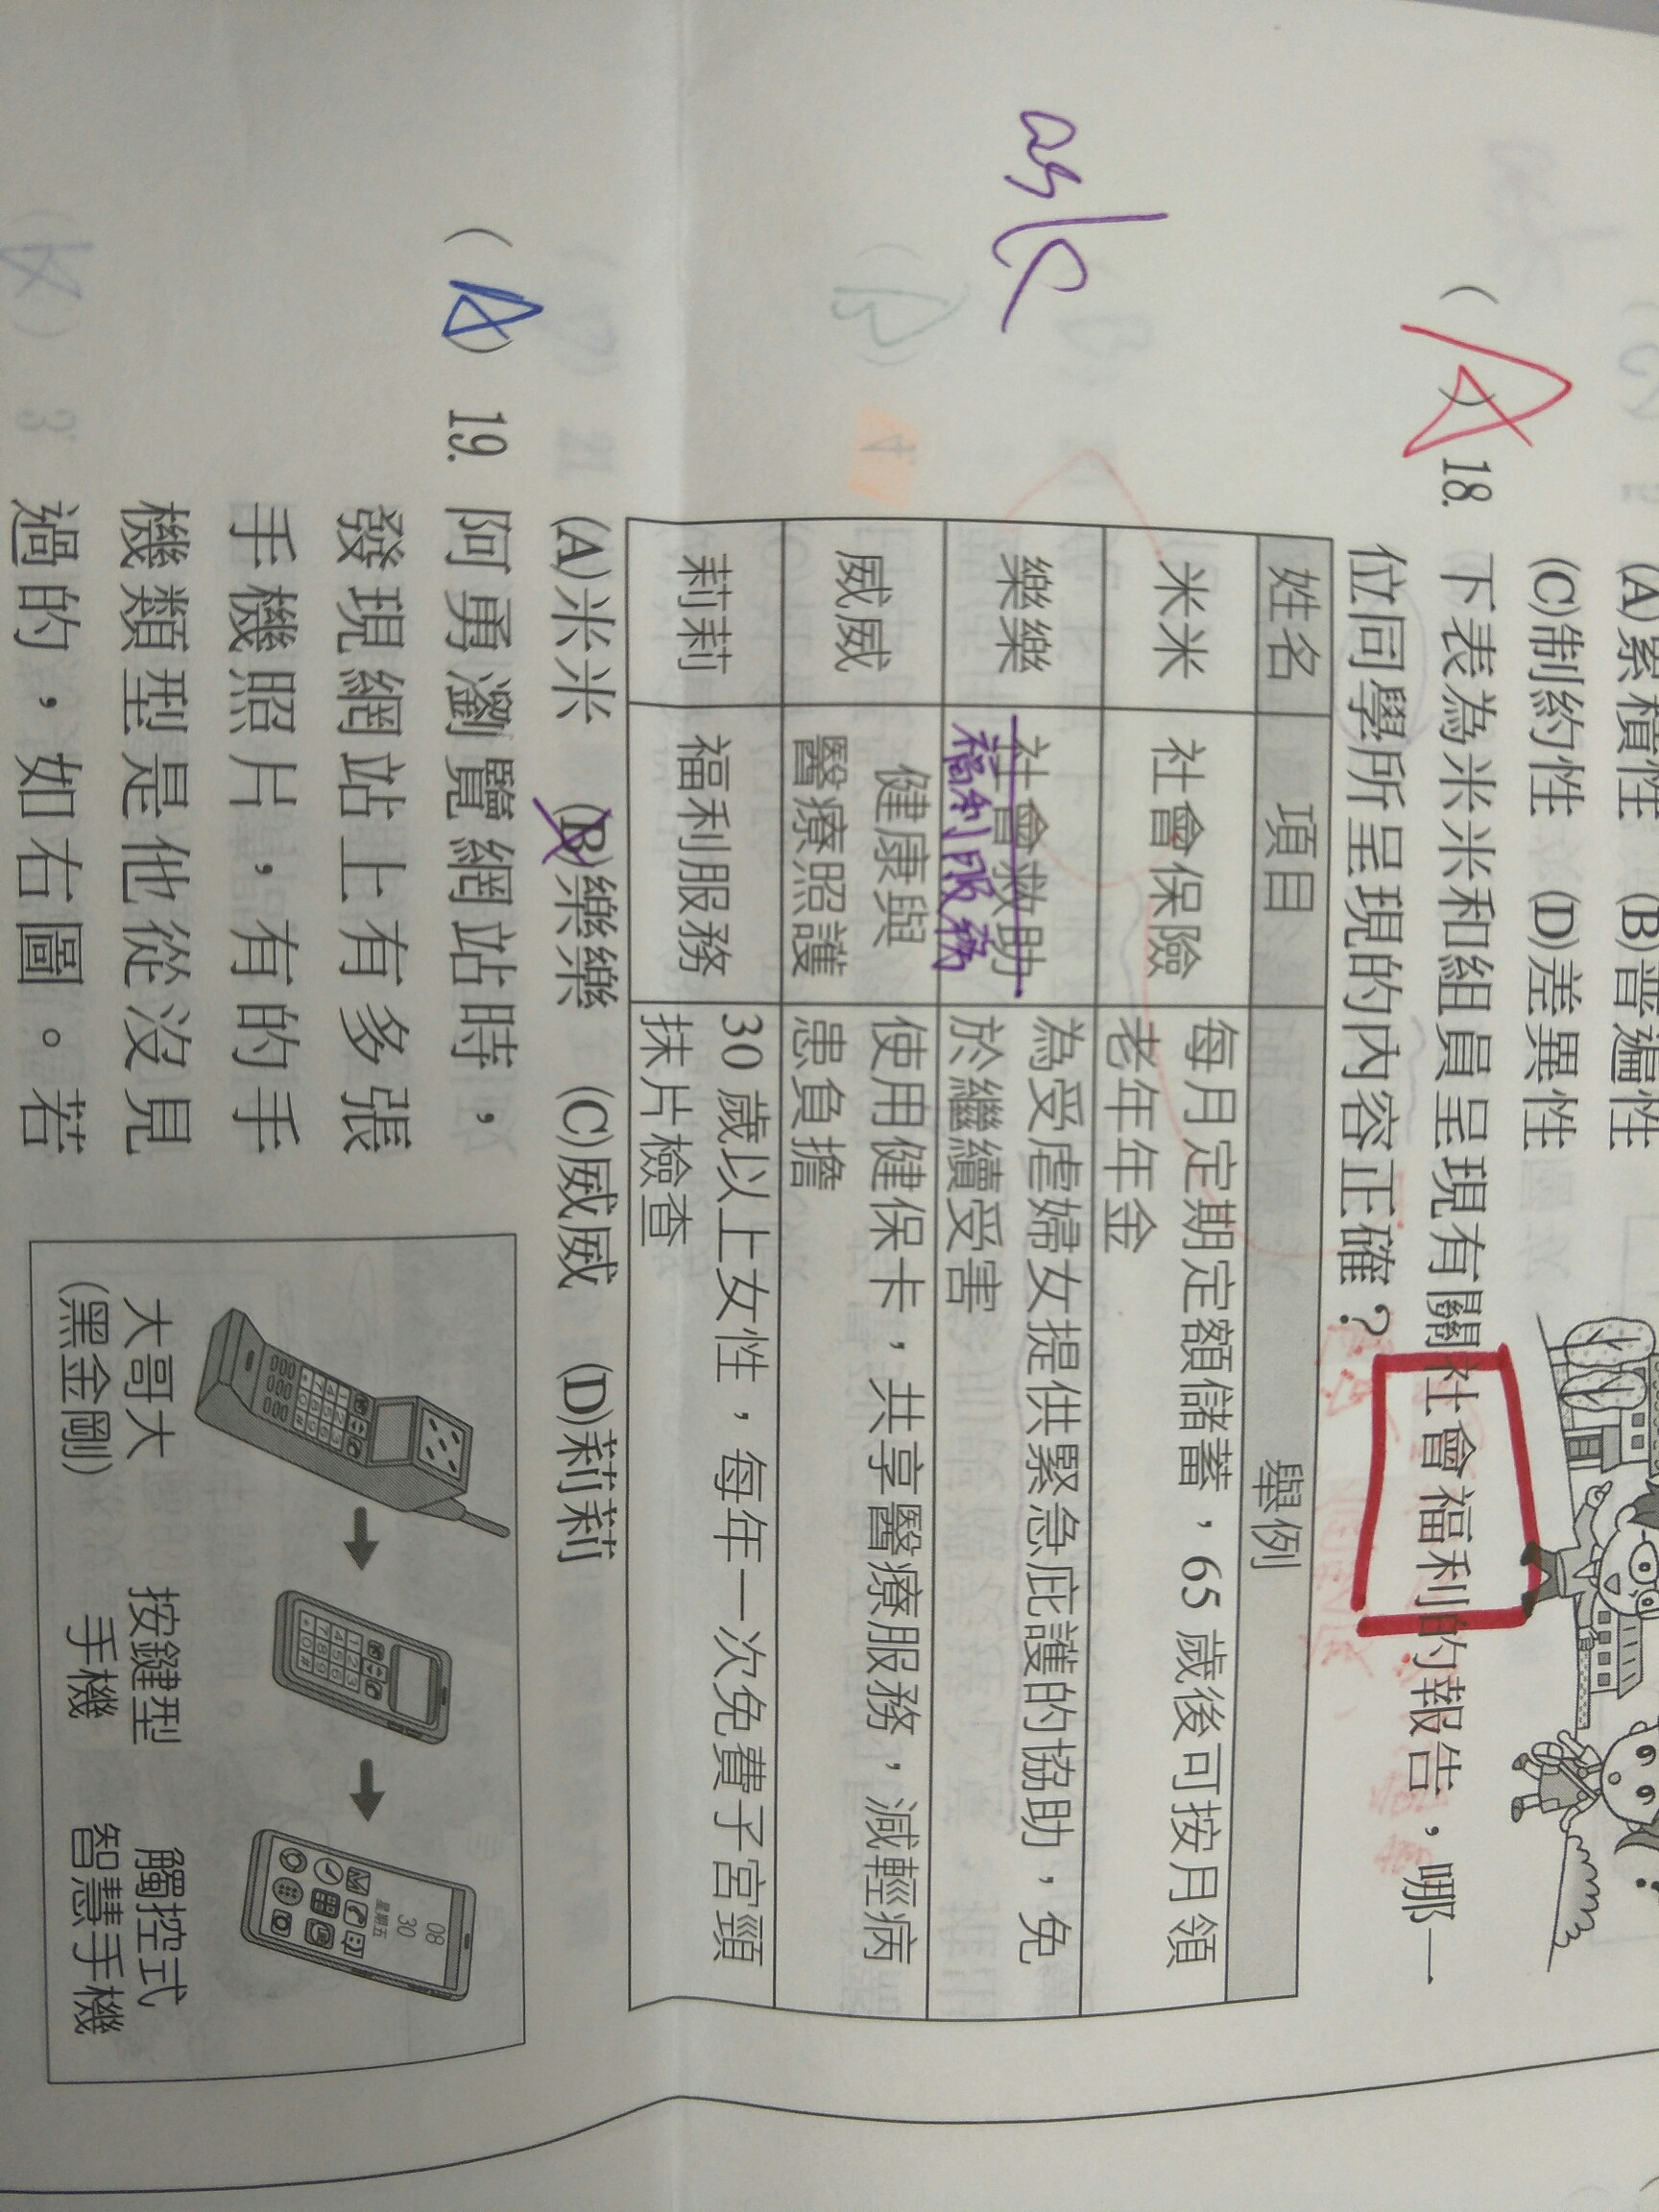 (A)累積性 (B)普遍性
(C)制約性 (D)差異性
(A) 18. 下表為米米和組員呈現有關社會福利的報告，哪一
位同學所呈現的內容正確？
姓名 項目 舉例
米米 社會保險 每月定期定額儲蓄，65 歲後可按月領
老年年金
樂樂 社會救助 為受虐婦女提供緊急庇護的協助，免
福利服務 於繼續受害
威威 健康與 使用健保卡，共享醫療服務，減輕病
醫療照護 患負擔
莉莉 福利服務 30 歲以上女性，每年一次免費子宮頸
抹片檢查
(A)米米 (B)樂樂 (C)威威 (D)莉莉
ask
19. 阿勇瀏覽網站時，
發現網站上有多張
手機照片，有的手
機類型是他從沒見
過的，如右圖。若
大哥大
(黑金剛)
按鍵型
手機
觸控式
智慧手機
08
30
星期五